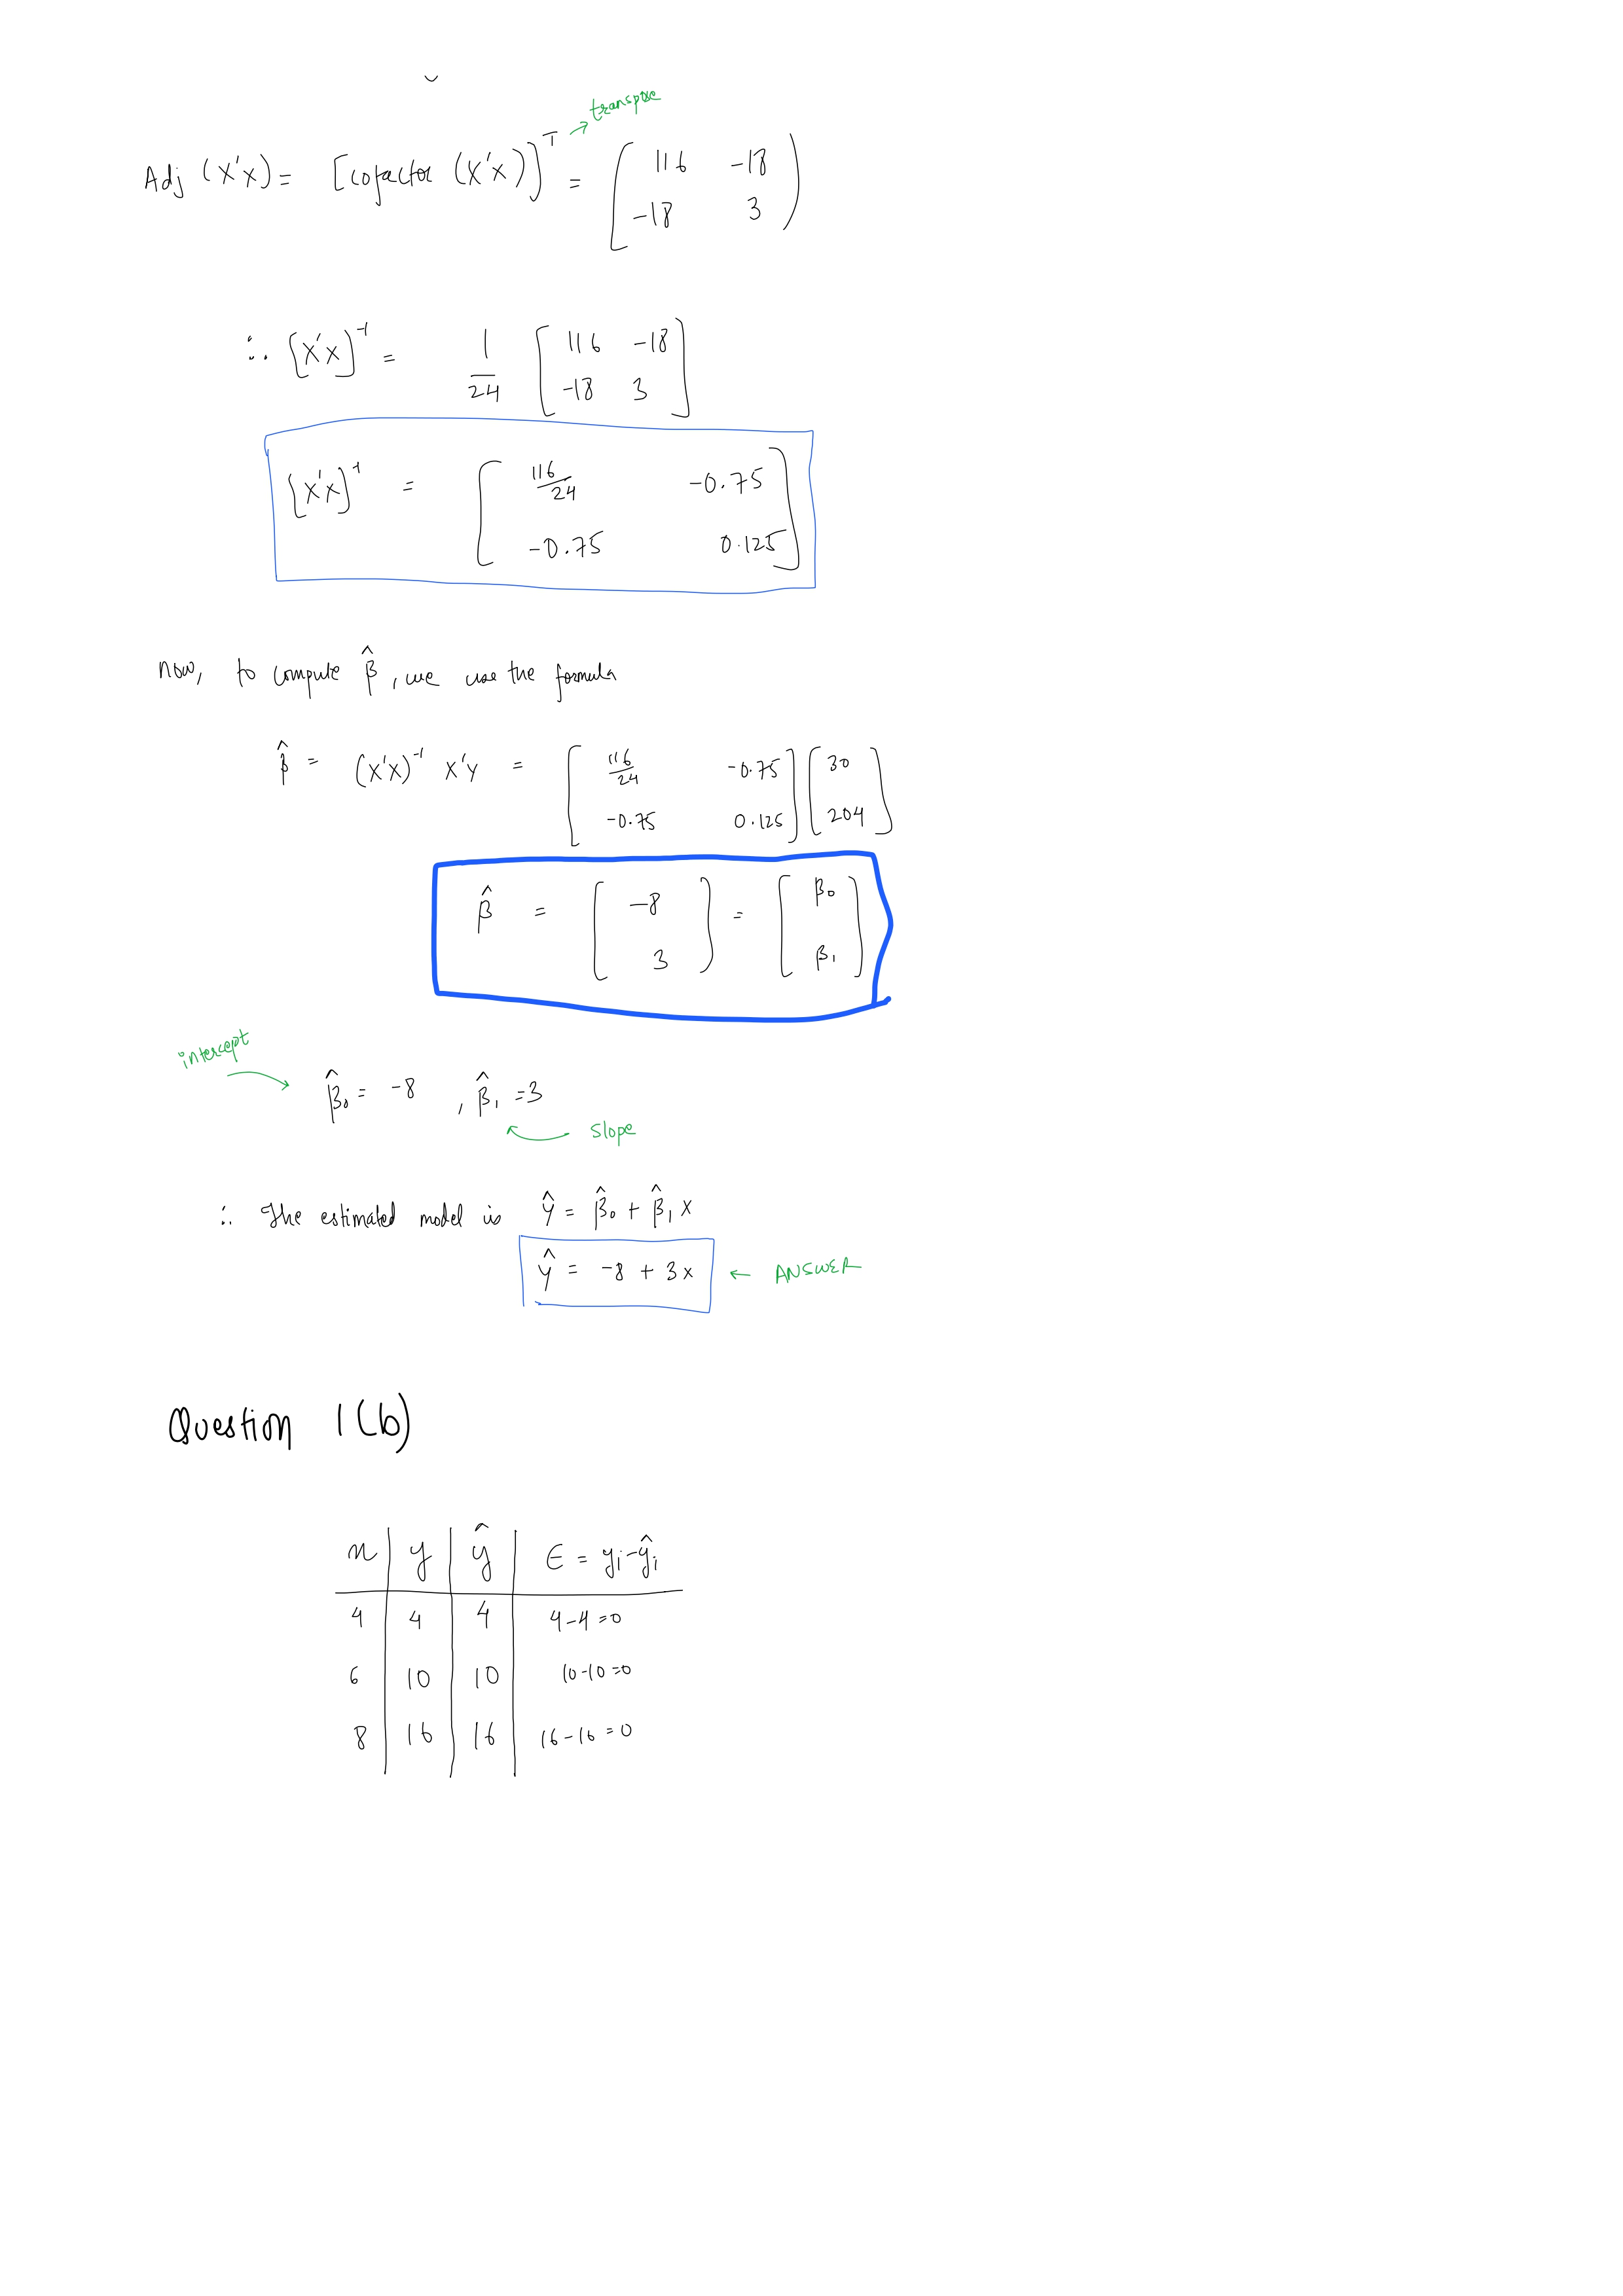 transpose
Adj (X'X) = [cofactor (X'X)]^T = ( 116 -18
-18 3 )
∴ [X'X]^-1 = 1/24 [ 116 -18
-18 3 ]
[X'X]^-1 = [ 116/24 -0.75
-0.75 0.125 ]
Now, to compute β̂, we use the formula
β̂ = (X'X)^-1 X'Y = [ 116/24 -0.75 ] [ 30
-0.75 0.125 ] 204 ]
β̂ = [ -8 ] = [ β₀
3 ] β₁ ]
intercept
β̂₀ = -8 , β̂₁ = 3
slope
∴ The estimated model is ŷ = β̂₀ + β̂₁ x
ŷ = -8 + 3x ← ANSWER
Question 1(b)
x y ŷ ϵ = yi-ŷi
4 4 4 4-4=0
6 10 10 10-10=0
8 16 16 16-16=0